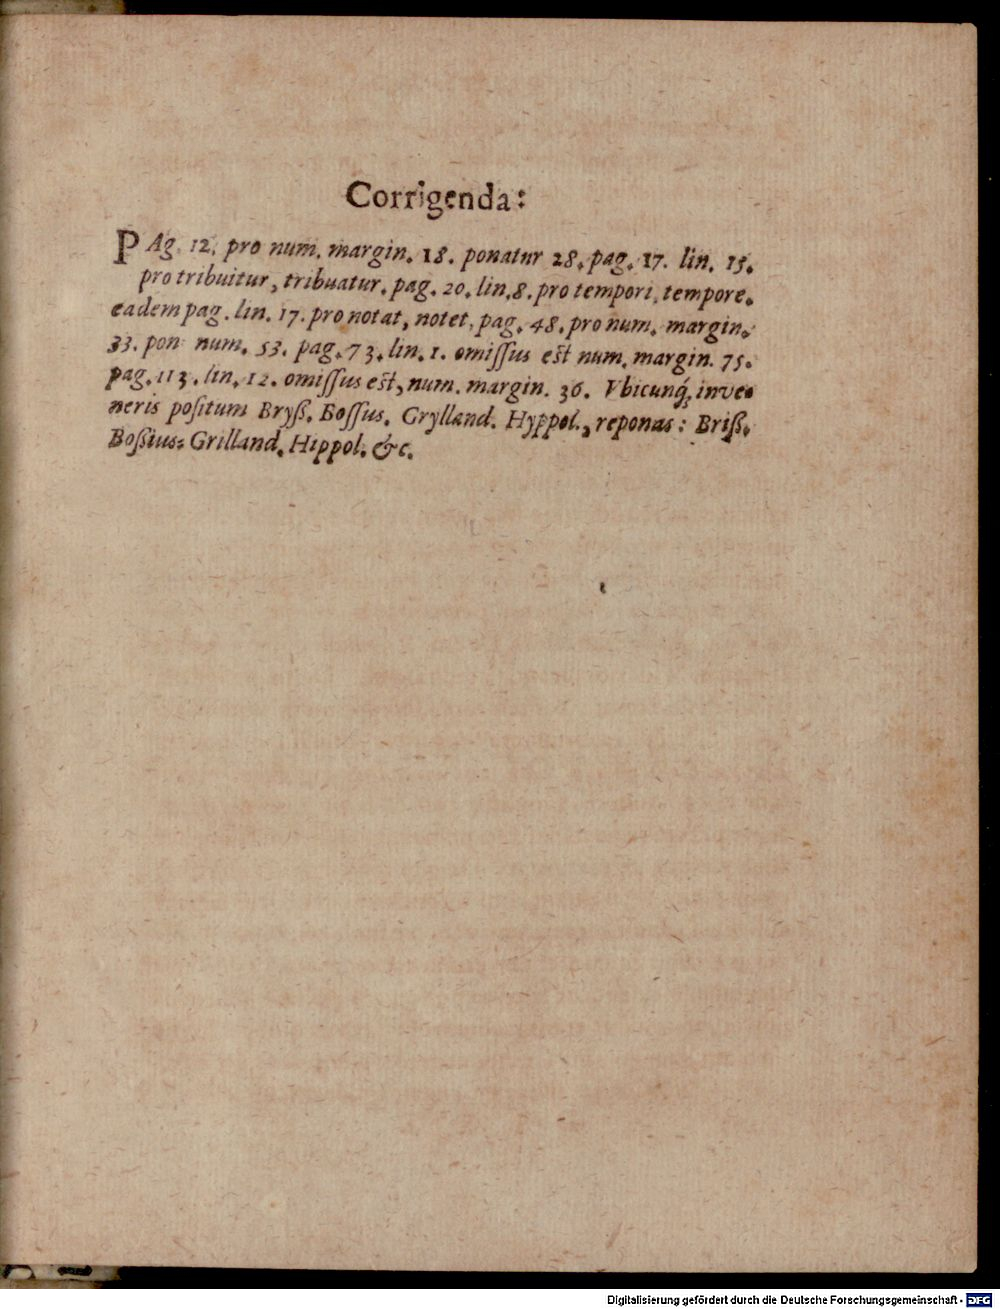 Corrigenda:
PAg. 12. pro num. margin. 18. ponatur 28. pag. 17. lin. 15.
pro tribuitur, tribuatur. pag. 20. lin. 8. pro tempori, tempore.
eadem pag. lin. 17. pro notat, notet, pag. 48. pro num. margin.
33. pon num. 53. pag. 73. lin. 1. omissus est num. margin. 75.
pag. 113. lin. 12. omissus est, num. margin. 36. Vbicunq́; inve-
neris positum Bryß. Bossus. Grylland. Hyppol., reponas: Briß.
Boßius: Grilland. Hippol. &c.
Digitalisierung gefördert durch die Deutsche Forschungsgemeinschaft - DFG